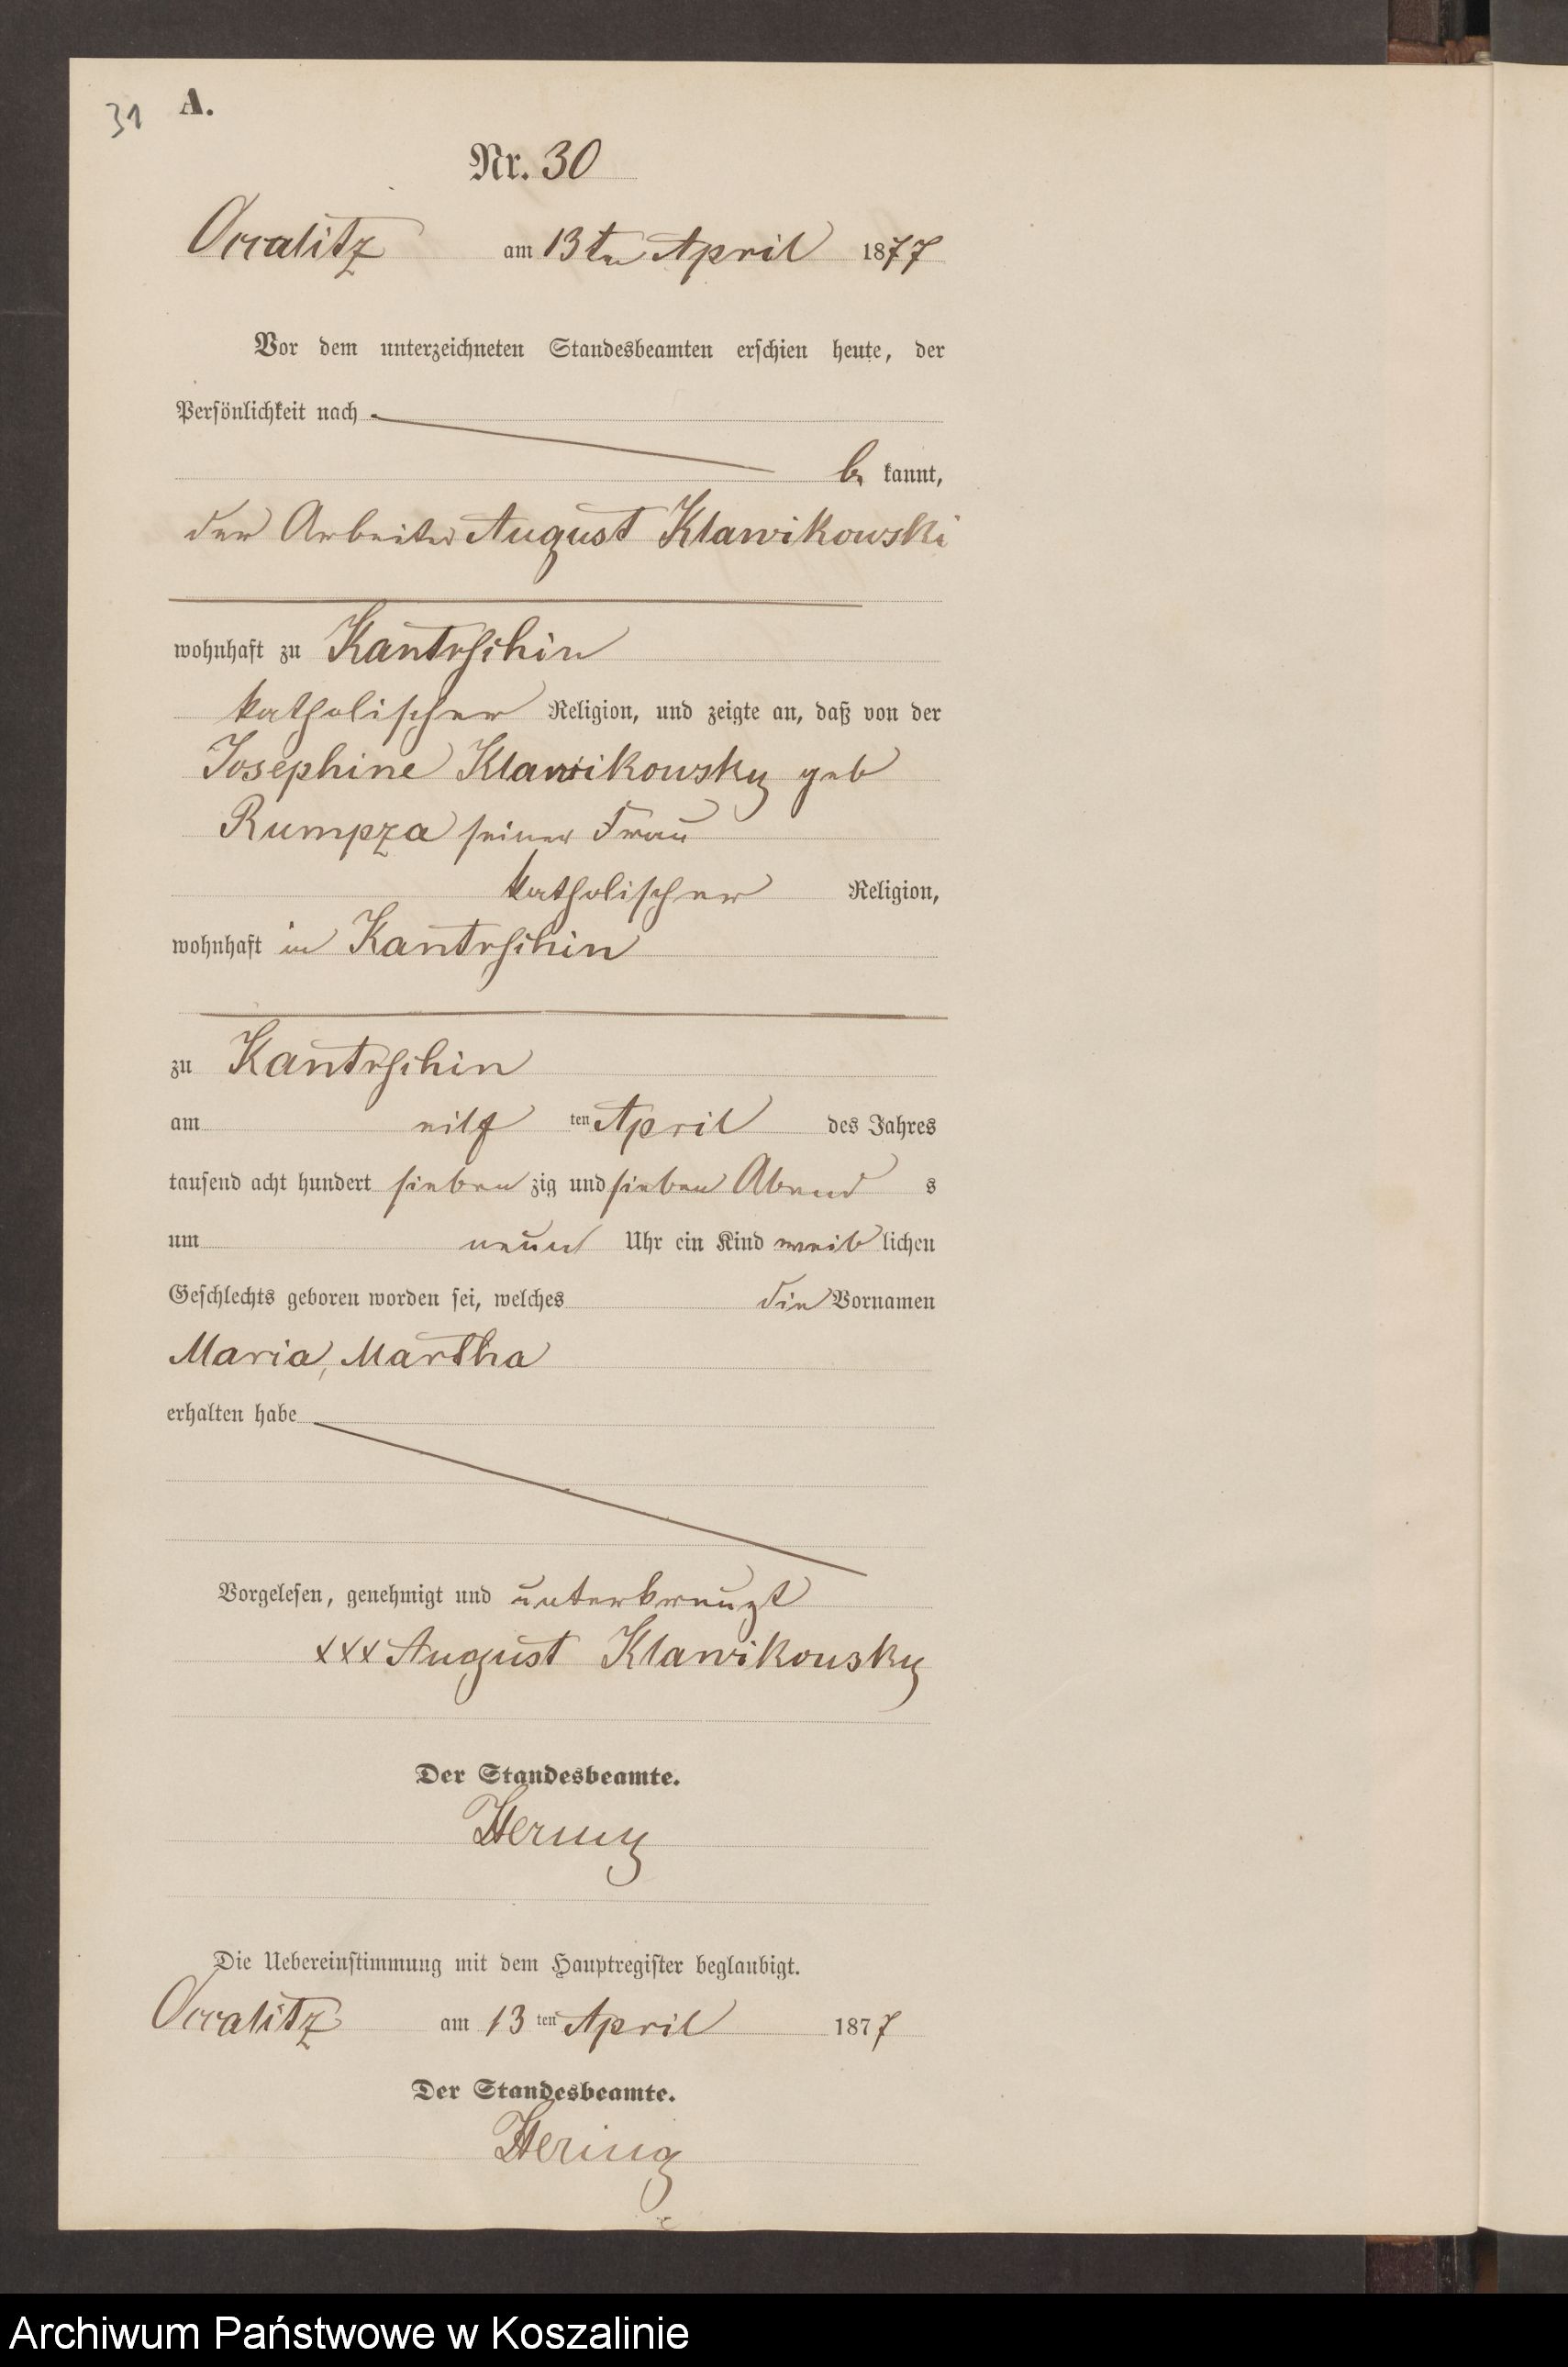 31 A.
Nr. 30
Occalitz am 13ten April 1877
Vor dem unterzeichneten Standesbeamten erschien heute, der
Persönlichkeit nach
be kannt,
der Arbeiter August Klawikowski
wohnhaft zu Kantrschin
katholischer Religion, und zeigte an, daß von der
Josephine Klawikowsky geb
Rumpza seiner Frau
katholischer Religion,
wohnhaft in Kantrschin
zu Kantrschin
am eilf ten April des Jahres
tausend acht hundert sieben zig und sieben Abend s
um neun Uhr ein Kind weib lichen
Geschlechts geboren worden sei, welches die Vornamen
Maria, Martha
erhalten habe
Vorgelesen, genehmigt und unterkreuzt
xxx August Klawikowsky
Der Standesbeamte.
Hering
Die Uebereinstimmung mit dem Hauptregister beglaubigt.
Occalitz am 13 ten April 1877
Der Standesbeamte.
Hering
Archiwum Państwowe w Koszalinie